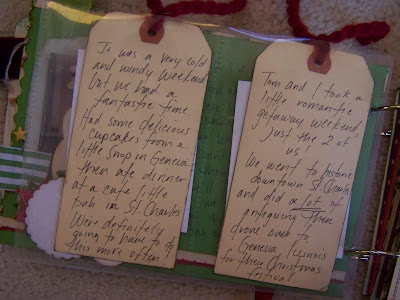 It was a very cold
and windy weekend
but we had a
fantastic time
Had some delicious
cupcakes from a
little shop in Geneva
then ate dinner
at a cute little
pub in St. Charles
We're definitely
going to have to do
this more often!
Tom and I took a
little romantic
getaway weekend,
just the 2 of
us
We went to historic
downtown St. Charles
and did a lot of
antiquing. Then
drove over to
Geneva Illinois
for their Christmas
festival